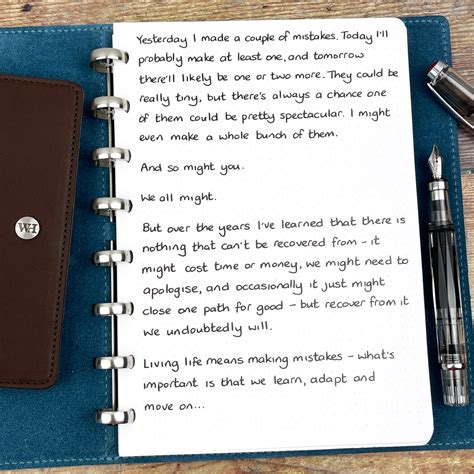 Yesterday I made a couple of mistakes. Today I'll
probably make at least one, and tomorrow
there'll likely be one or two more. They could be
really tiny, but there's always a chance one
of them could be pretty spectacular. I might
even make a whole bunch of them.
And so might you.
We all might.
But over the years I've learned that there is
nothing that can't be recovered from - it
might cost time or money, we might need to
apologise, and occasionally it just might
close one path for good - but recover from it
we undoubtedly will.
Living life means making mistakes - what's
important is that we learn, adapt and
move on...
WH